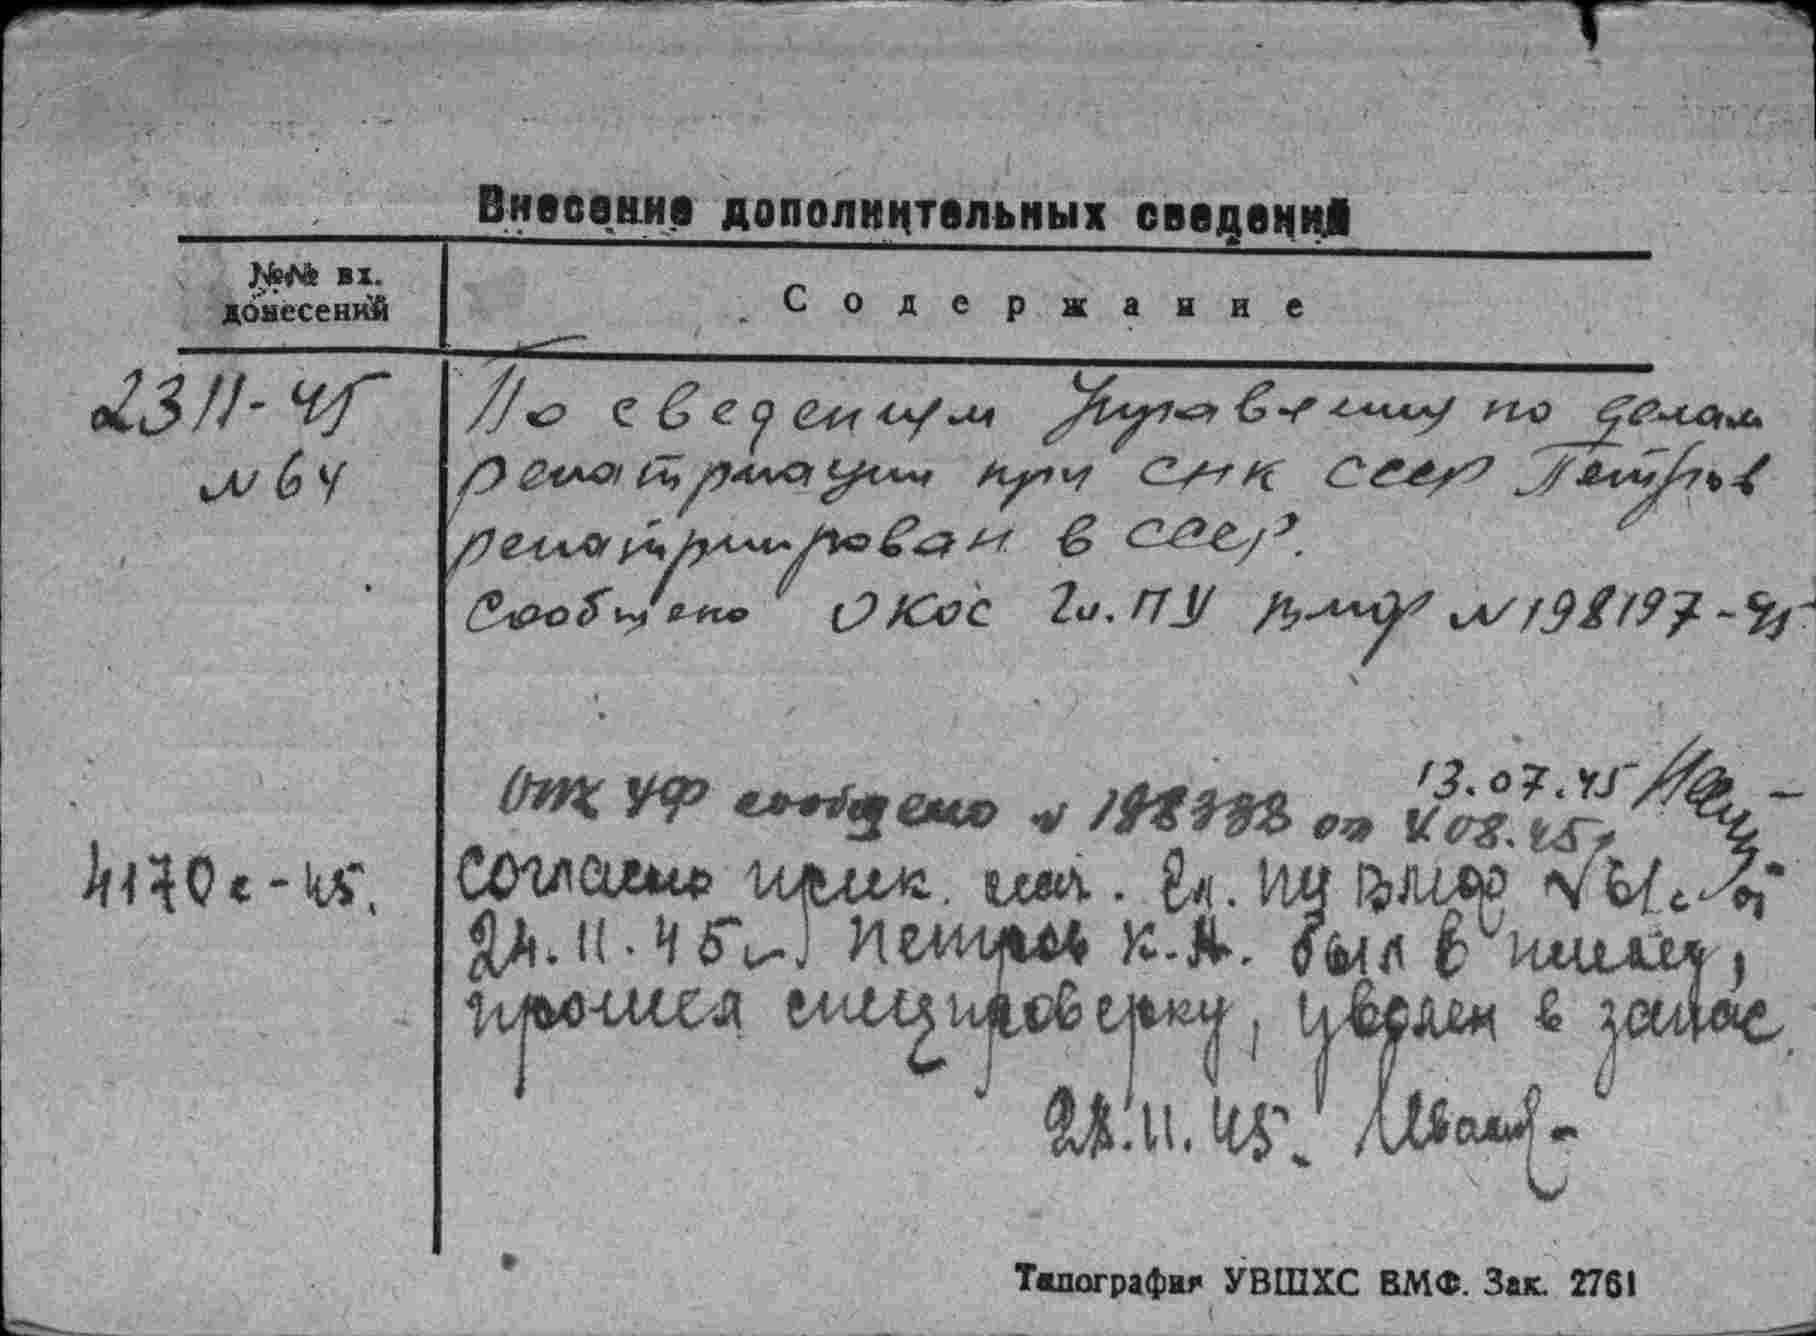 Внесение дополнительных сведений
№№ вх.
донесений
Содержание
2311-45
N 64
По сведениям Управления по делам
репатриации при СНК СССР Петров
репатриирован в СССР.
Сообщено ОКОС Гл. ПУ ВМФ N 198197-45
13.07.45
Отд УФ сообщено N от 4.08.45г
4170с-45.
Согласно прик. нач. Гл. ПУ ВМФ N 61с от
24.11.45г. Петров К.А. был в плену,
прошел спецпроверку, уволен в запас.
28.11.45. Иванов
Типография УВШХС ВМФ. Зак. 2761